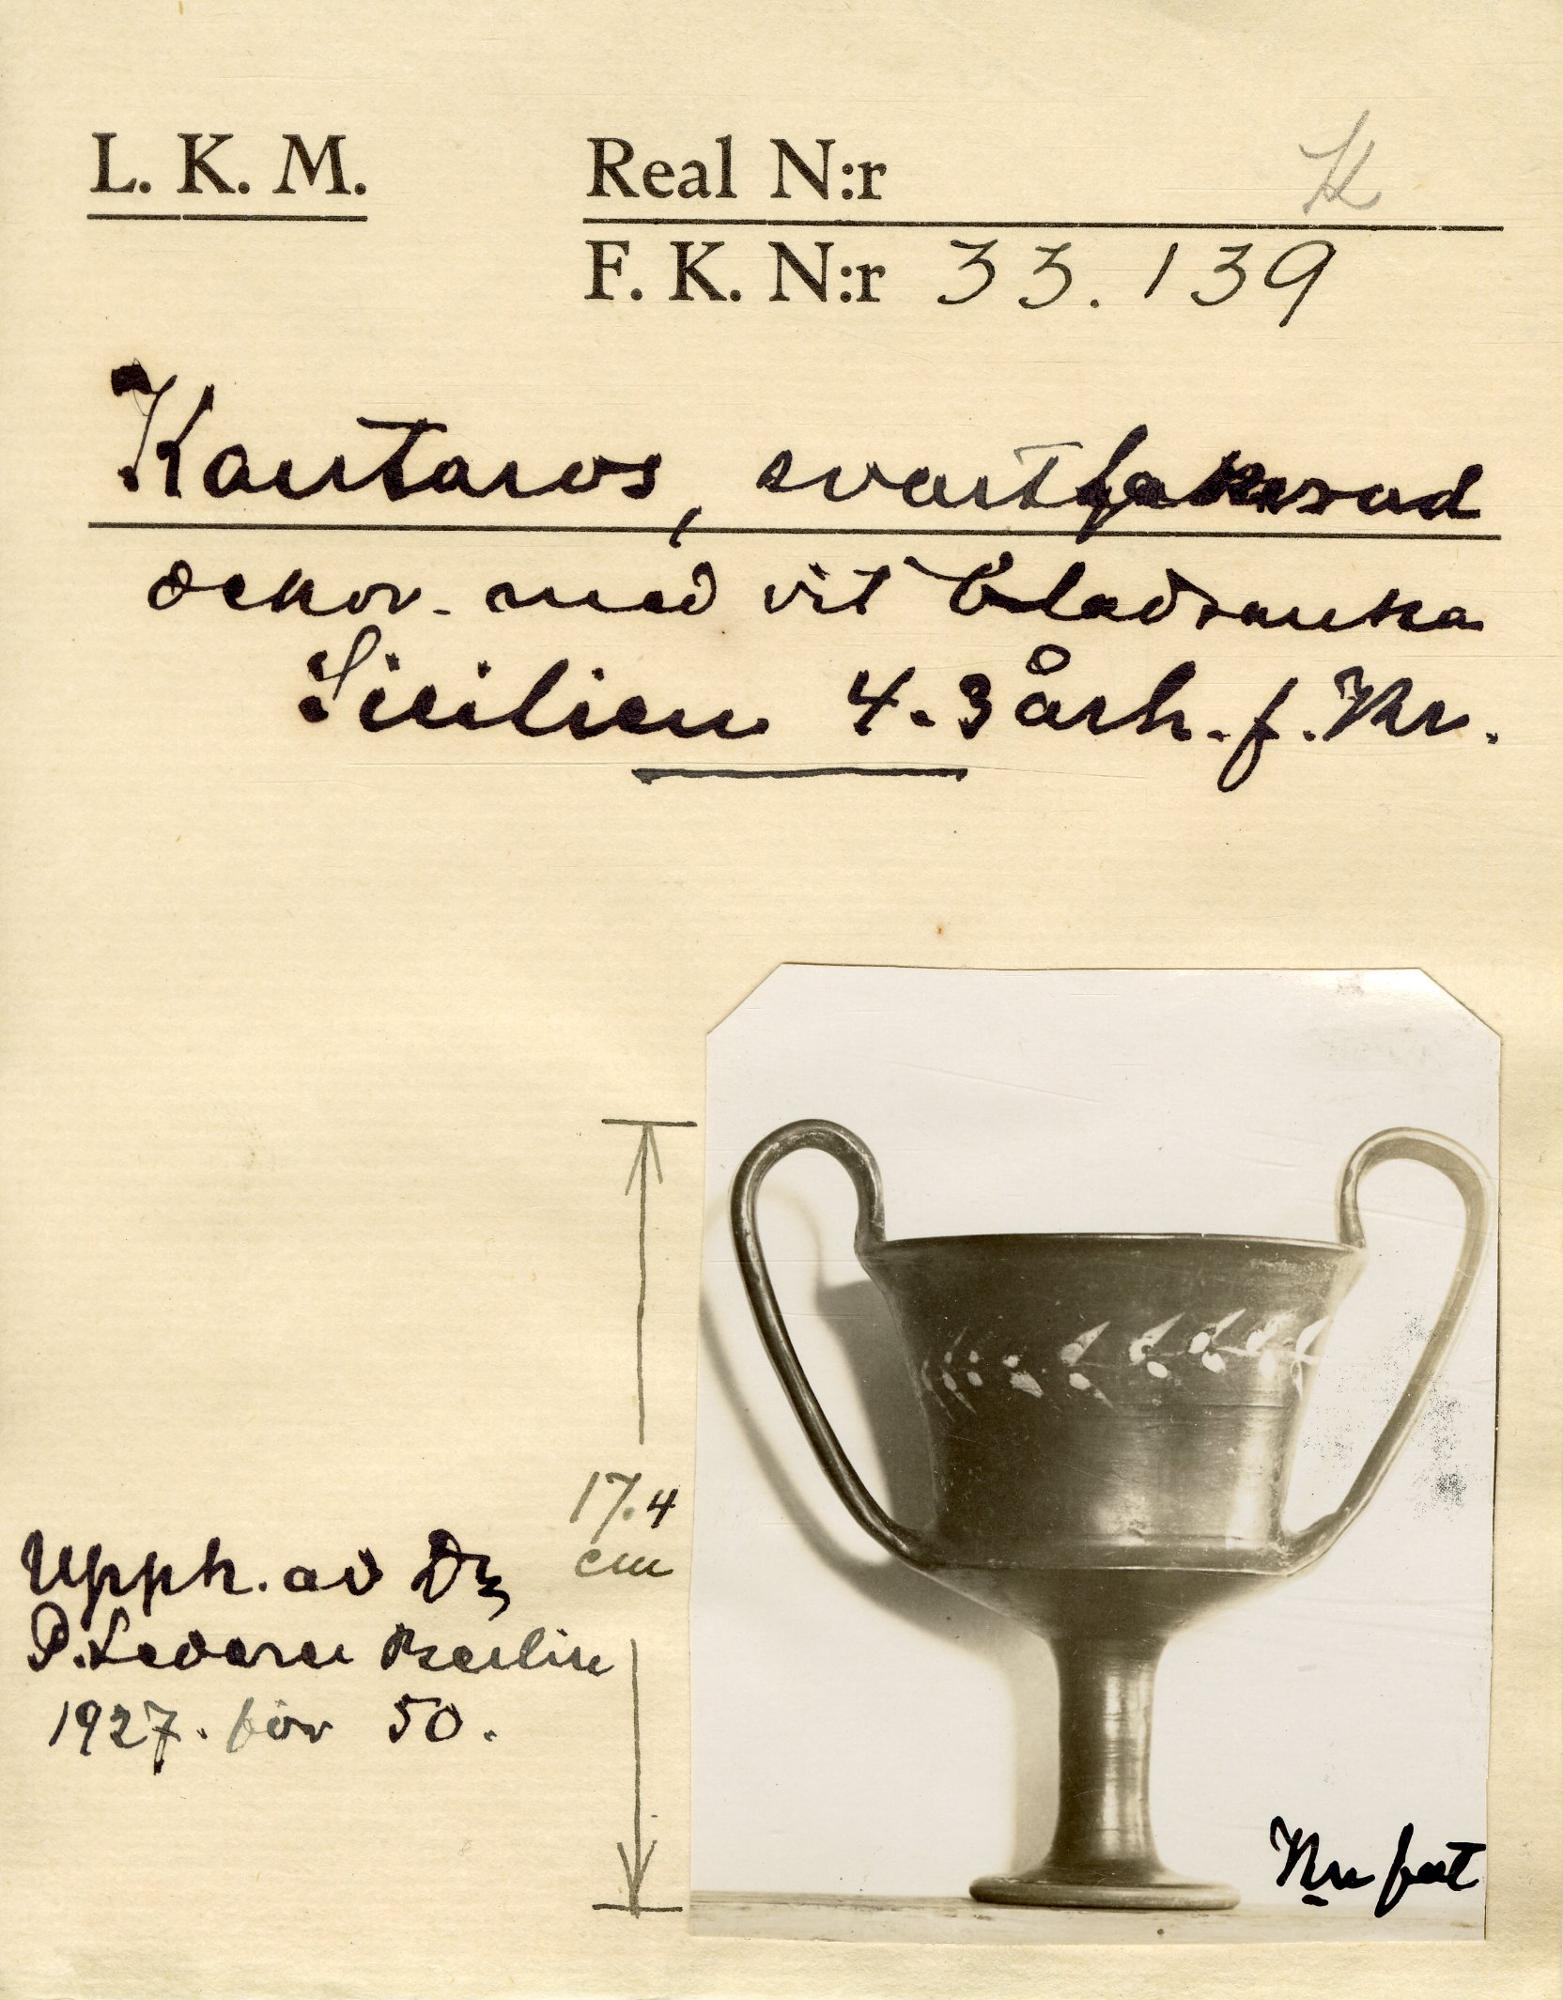 L. K. M.
Real N:r K
F. K. N:r 33.139
Kantaros, svartfakerad
dekor. med vit bladranka
Sicilien 4.3 årh. f. Kr.
17.4
cm
Upph. av Dr
P. Lederer Berlin
1927. för 50.